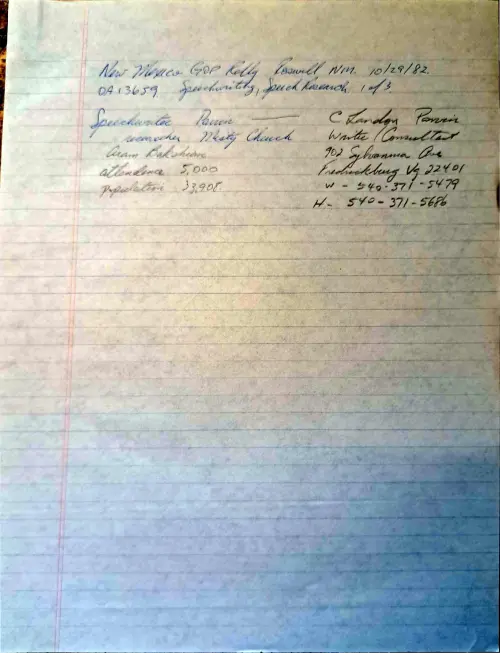 New Mexico GOP Rally Roswell N.M. 10/29/82
OA 13659 Speechwriting, Speech Research 1 of 3
Speechwriter Parvin —— C Landon Parvin
researcher Misty Church Writer/Consultant
Aram Bakshian 902 Sylvania Ave
attendance 5,000 Fredricksburg Va 22401
population 33,908 W - 540-371-5479
H - 540-371-5686